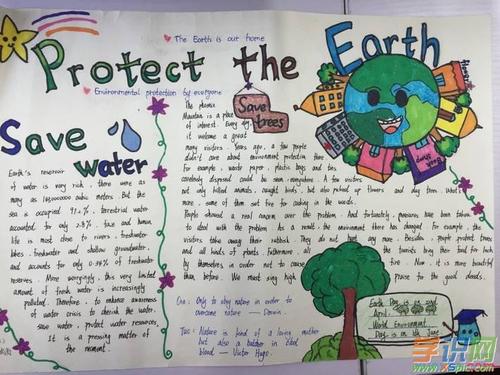 The Earth is our home
Protect the Earth
Environmental protection by everyone
Save
water
Earth's reservoir
of water is very rich, there were as
many as
cubic meters. But the
sea is occupied
terrestrial water
accounted for only 2.8%. true and human
life is most close to rivers, freshwater
lakes, freshwater and shallow groundwater,
and accounts for only
of freshwater
More worryingly, this very limited
amount of fresh water is increasingly
polluted. Therefore, to enhance awareness
of water crisis to cherish the water,
save water, protect water resources,
It is a pressing matter of
the moment.
Save
trees
The phoenix
Mountain is a place
of interest. Every day,
it welcome a great
many visitors. Years ago, a few people
didn't care about environment protection there.
For example, waste paper, plastic bags and
disposed could be seen everywhere. A few visitors
not only killed animals, caught birds, but also picked up flowers and dig them. What's
more, some of them set fire for cooking in the woods.
People showed a real concern over the problem. And fortunately, measures have been taken
to deal with the problem. As a result, the environment there has changed. For example, the
visitors take away their rubbish. They do not hunt any more. Besides, people protect trees
and all kinds of plants. Furthermore, all the tourists bring their food for lunch
by themselves, in order not to cause fire. Now, it is more beautiful
than before. We must sing high praise for the good deeds.
One: Only to obey nature in order to
overcome nature — Darwin.
Two: Nature is kind of a loving mother
but also a butcher in cold
blood — Victor Hugo.
Earth Day is on 22nd
April
World Environment
Day is on 5th June
Book
Shop
学识网
www.xspic.com